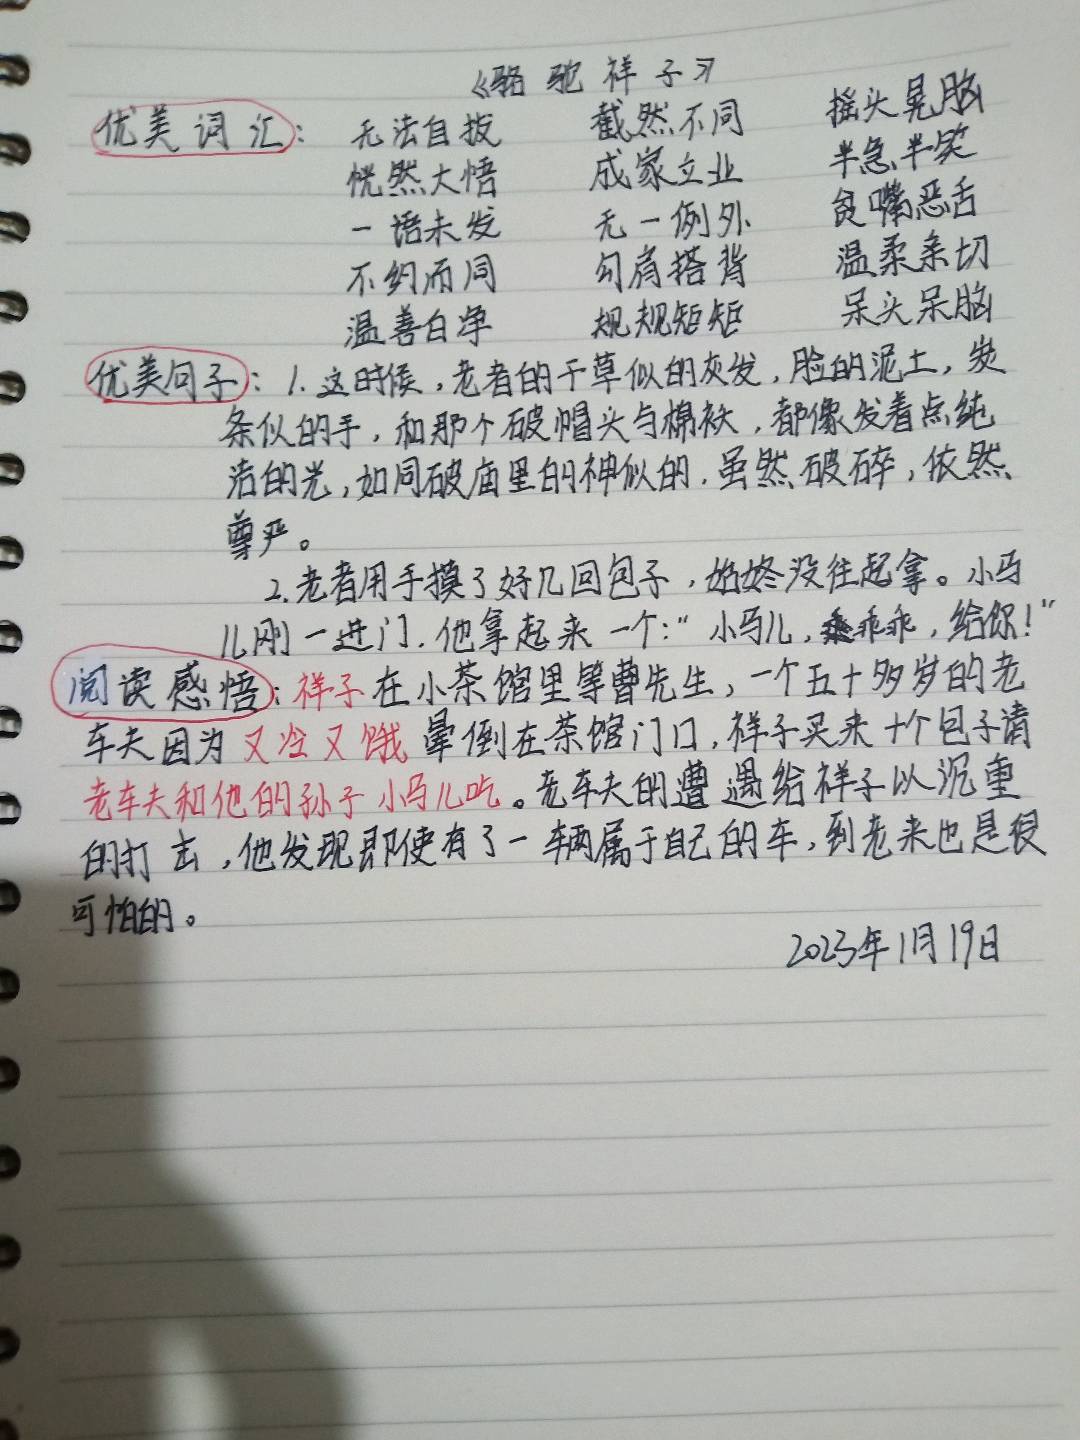 《骆驼祥子》
优美词汇： 无法自拔 截然不同 摇头晃脑
恍然大悟 成家立业 半急半笑
一语未发 无一例外 贫嘴恶舌
不约而同 勾肩搭背 温柔亲切
温善白净 规规矩矩 呆头呆脑
优美句子：1.这时候，老者的干草似的灰发，脸的泥土，炭
条似的手，和那个破帽头与棉袄，都像发着点纯
洁的光，如同破庙里的神似的，虽然破碎，依然
尊严。
2.老者用手摸了好几回包子，始终没往起拿。小马
儿刚一进门，他拿起来一个：“小马儿，乖乖，给你！”
阅读感悟：祥子在小茶馆里等曹先生，一个五十多岁的老
车夫因为又冷又饿晕倒在茶馆门口，祥子买来十个包子请
老车夫和他的孙子小马儿吃。老车夫的遭遇给祥子以沉重
的打击，他发现即使有了一辆属于自己的车，到老来也是很
可怕的。
2023年1月19日